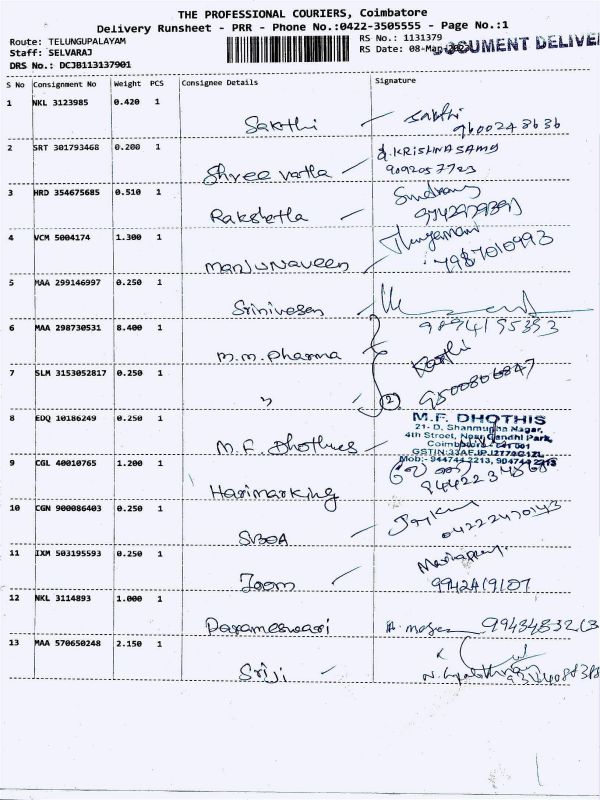 THE PROFESSIONAL COURIERS, Coimbatore
Delivery Runsheet - PRR - Phone No.:0422-3505555 - Page No.:1
Route: TELUNGUPALAYAM
RS No.: 1131379
Staff: SELVARAJ
RS Date: 08-Mar
DOCUMENT DELIVER
DRS No.: DCJB113137901
S No Consignment No Weight PCS Consignee Details Signature
1 NKL 3123985 0.420 1
Sakthi Sakthi
9600243636
2 SRT 301793468 0.200 1
Shree vatla KRISHNASAMY
9092057723
3 HRD 354675685 0.510 1
Raksketla
4 VCM 5004174 1.300 1
ManjuNaveen 7987010993
5 MAA 299146997 0.250 1
Srinivesan
6 MAA 298730531 8.400 1
9894155353
M.M. Pharma Karthi
7 SLM 3153052817 0.250 1
" (2) 9500806847
8 EDQ 10186249 0.250 1
M.F. DHOTHIS
21- D, Shanmugha Nagar,
4th Street, Near Gandhi Park,
Coimbatore - 641 001
M.F. Dhothies
GSTIN:
Mob:- 944744 2213, 904744 2213
9 CGL 40010765 1.200 1
Harimarking
10 CGN 900086403 0.250 1
SBOA 04222470143
11 IXM 503195593 0.250 1
Zoom 9942419107
12 NKL 3114893 1.000 1
Parameswari
13 MAA 570650248 2.150 1
Sriji